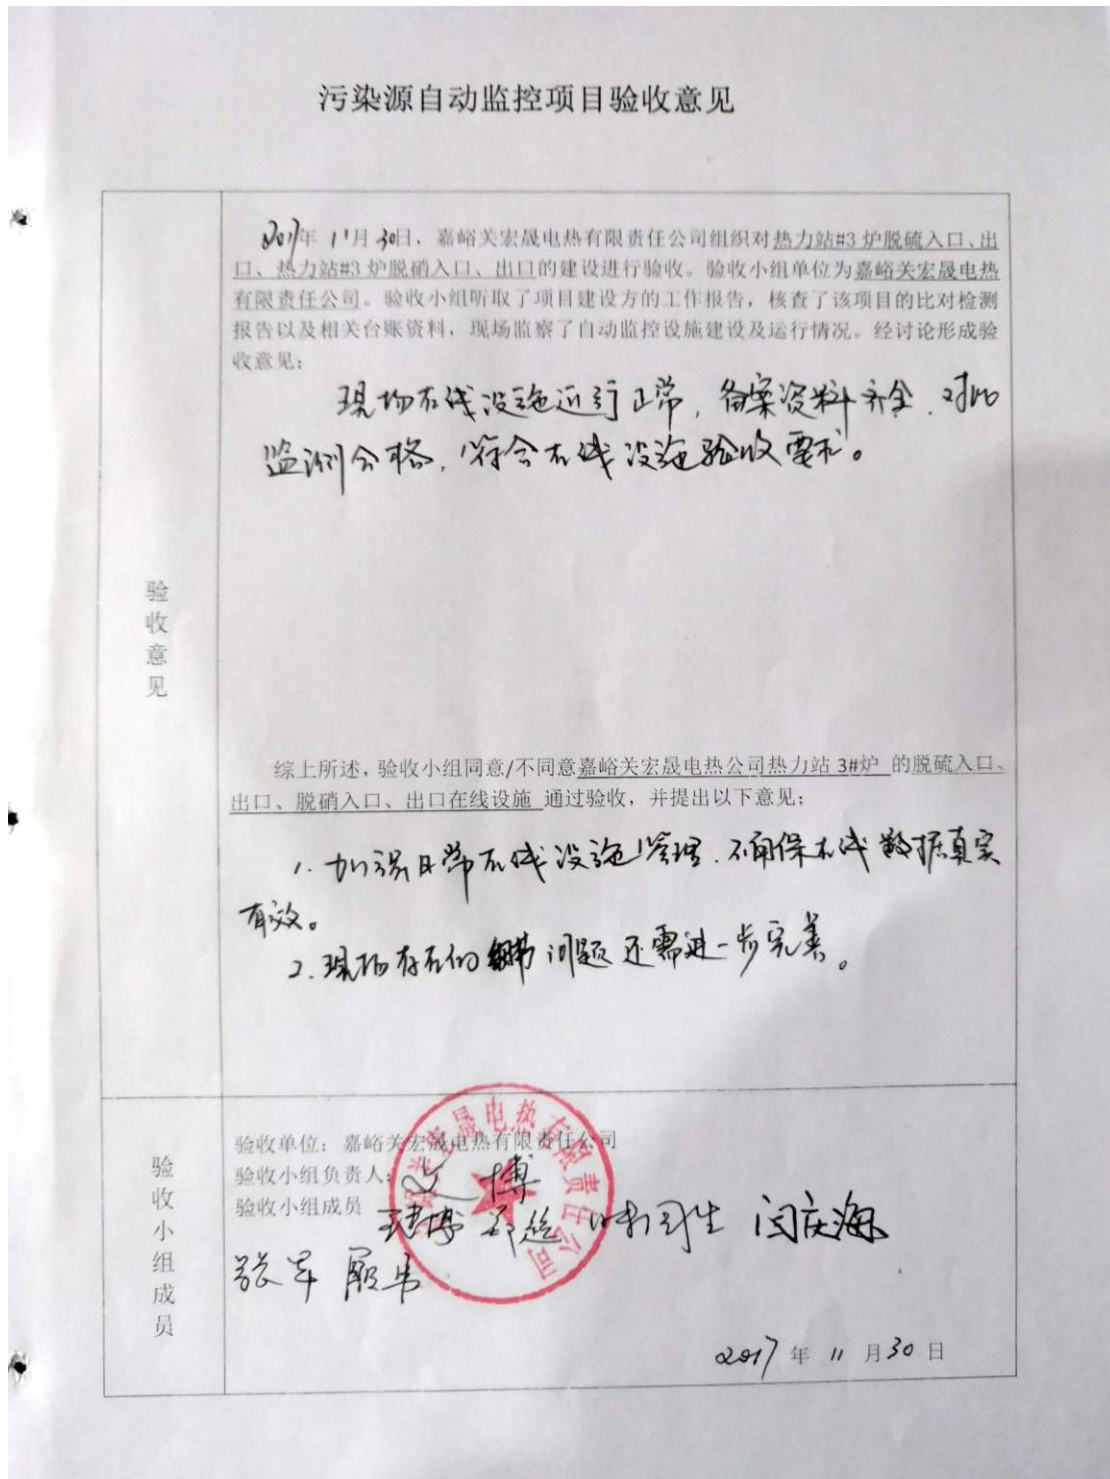 污染源自动监控项目验收意见
2017年11月30日，嘉峪关宏晟电热有限责任公司组织对热力站#3炉脱硫入口、出
口、热力站#3炉脱硝入口、出口的建设进行验收。验收小组单位为嘉峪关宏晟电热
有限责任公司。验收小组听取了项目建设方的工作报告，核查了该项目的比对检测
报告以及相关台账资料，现场监察了自动监控设施建设及运行情况。经讨论形成验
收意见：
现场在线设施运行正常，备案资料齐全，对比
监测合格，符合在线设施验收要求。
验收意见
综上所述，验收小组同意/不同意嘉峪关宏晟电热公司热力站 3#炉 的脱硫入口、
出口、脱硝入口、出口在线设施 通过验收，并提出以下意见；
1. 加强日常在线设施管理，确保在线数据真实
有效。
2. 现场存在的 问题还需进一步完善。
验收小组成员
验收单位：嘉峪关宏晟电热有限责任公司
验收小组负责人：
验收小组成员
闫庆海
张军
2017年11月30日